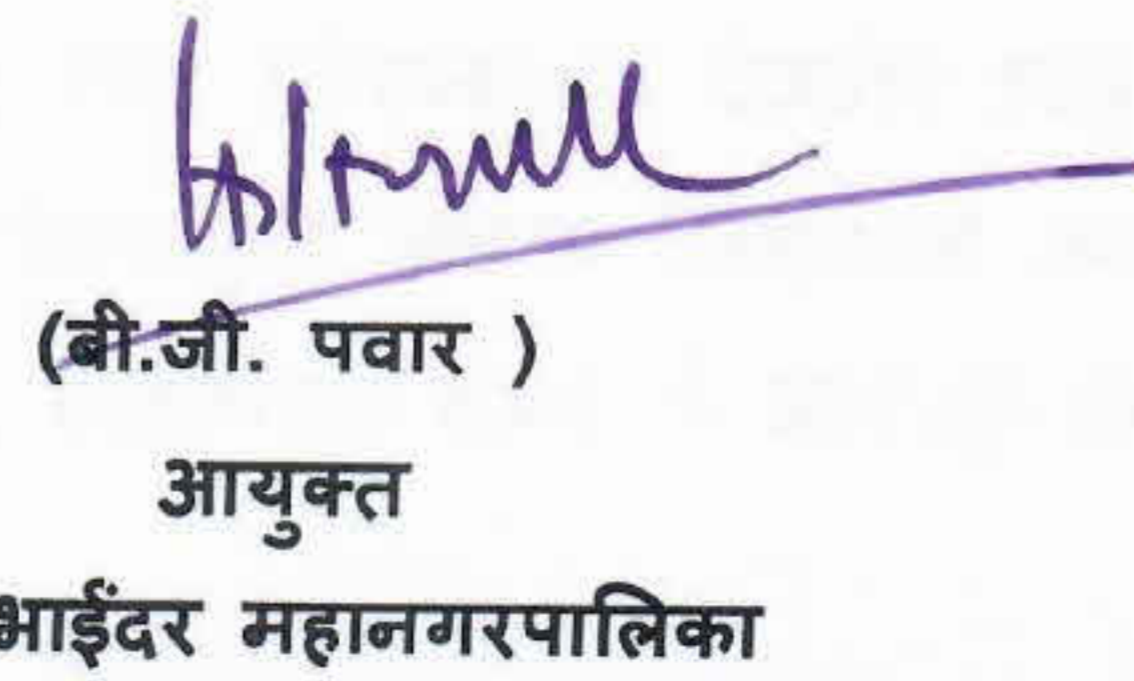 (बी.जी. पवार )
आयुक्त
भाईंदर महानगरपालिका